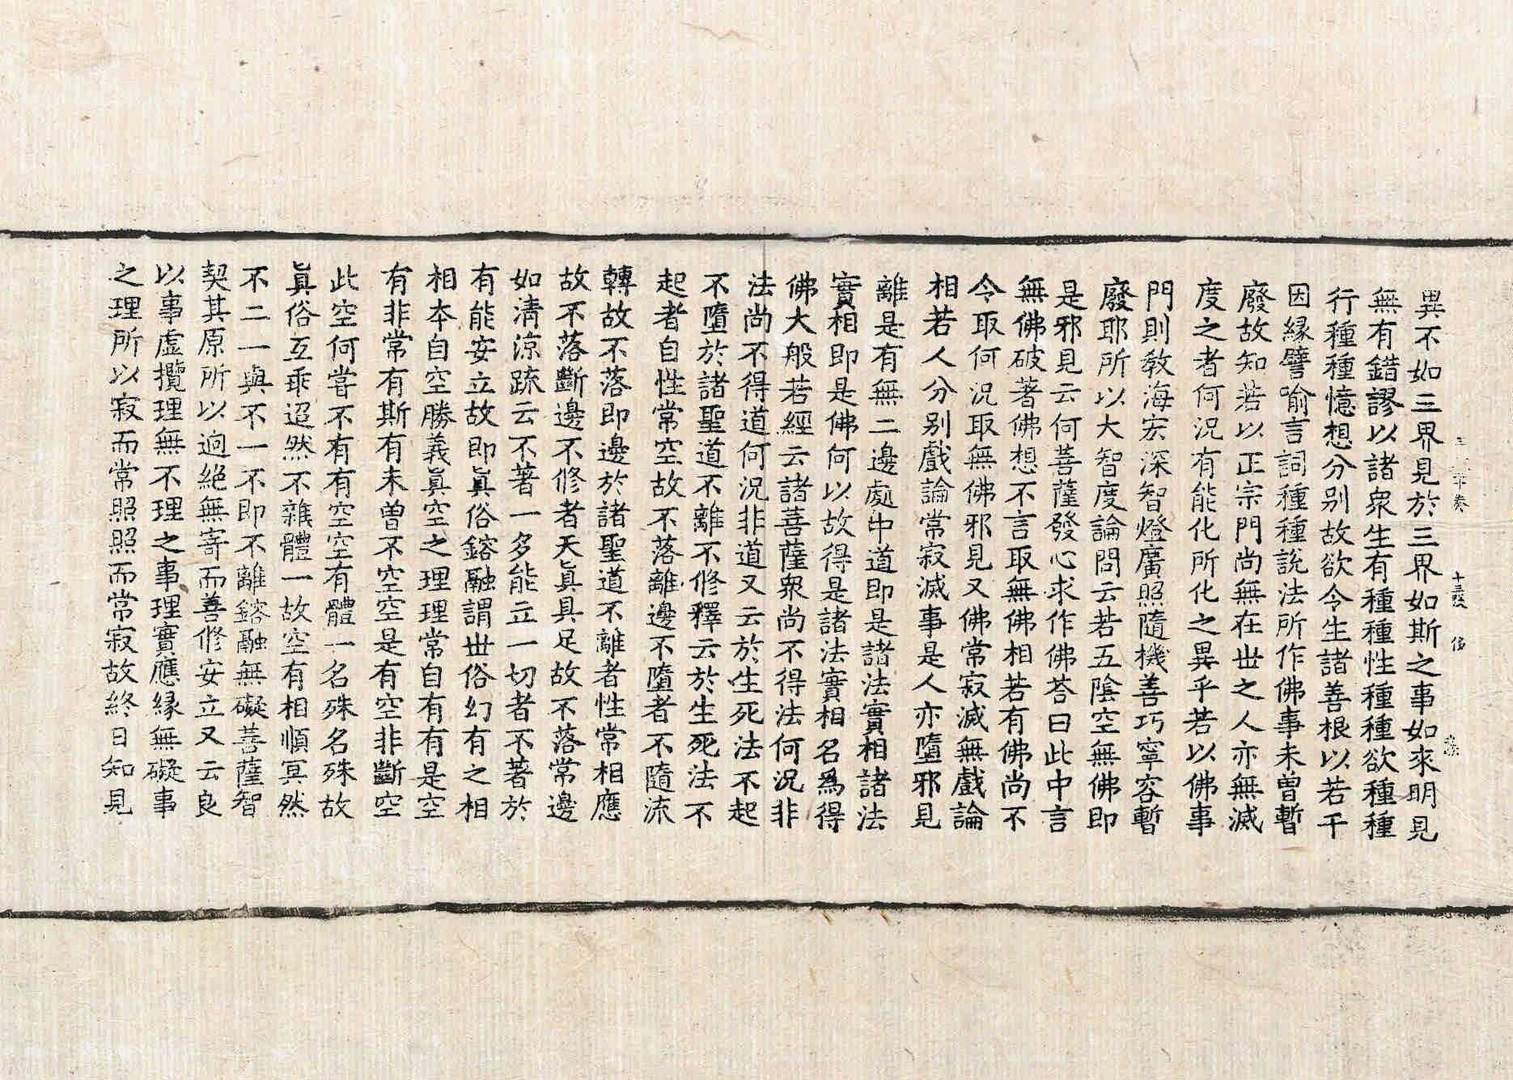 異不如三界見於三界如斯之事如來明見
無有錯謬以諸衆生有種種性種種欲種種
行種種憶想分別故欲令生諸善根以若干
因緣譬喻言詞種種說法所作佛事未曽暫
廢故知若以正宗門尚無在世之人亦無滅
度之者何況有能化所化之異乎若以佛事
門則敎海宏深智燈廣照隨機善巧寧容暫
廢耶所以大智度論問云若五陰空無佛即
是邪見云何菩薩發心求作佛荅曰此中言
無佛破著佛想不言取無佛相若有佛尚不
令取何況取無佛邪見又佛常寂滅無戲論
相若人分别戲論常寂滅事是人亦墮邪見
離是有無二邊處中道即是諸法實相諸法
實相即是佛何以故得是諸法實相名爲得
佛大般若經云諸菩薩衆尚不得法何況非
法尚不得道何況非道又云於生死法不起
不墮於諸聖道不離不修釋云於生死法不
起者自性常空故不落離邊不墮者不隨流
轉故不落即邊於諸聖道不離者性常相應
故不落斷邊不修者天眞具足故不落常邊
如清涼䟽云不著一多能立一切者不著於
有能安立故即眞俗鎔融謂世俗幻有之相
相本自空勝義眞空之理理常自有有是空
有非常有斯有未曽不空空是有空非斷空
此空何甞不有有空空有體一名殊名殊故
眞俗互乖迢然不雜體一故空有相順冥然
不二一與不一不即不離鎔融無礙菩薩智
契其原所以逈絕無寄而善修安立又云良
以事虛攬理無不理之事理實應緣無礙事
之理所以寂而常照照而常寂故終日知見